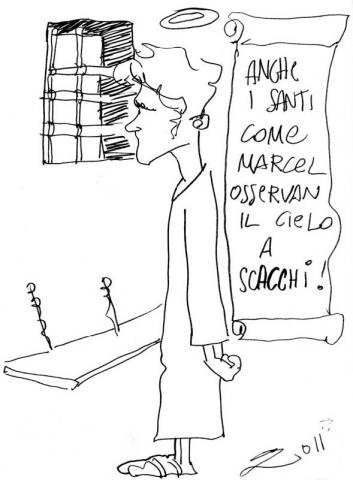 ANCHE
I SANTI
COME
MARCEL
OSSERVAN
IL CIELO
A
SCACCHI!
2011